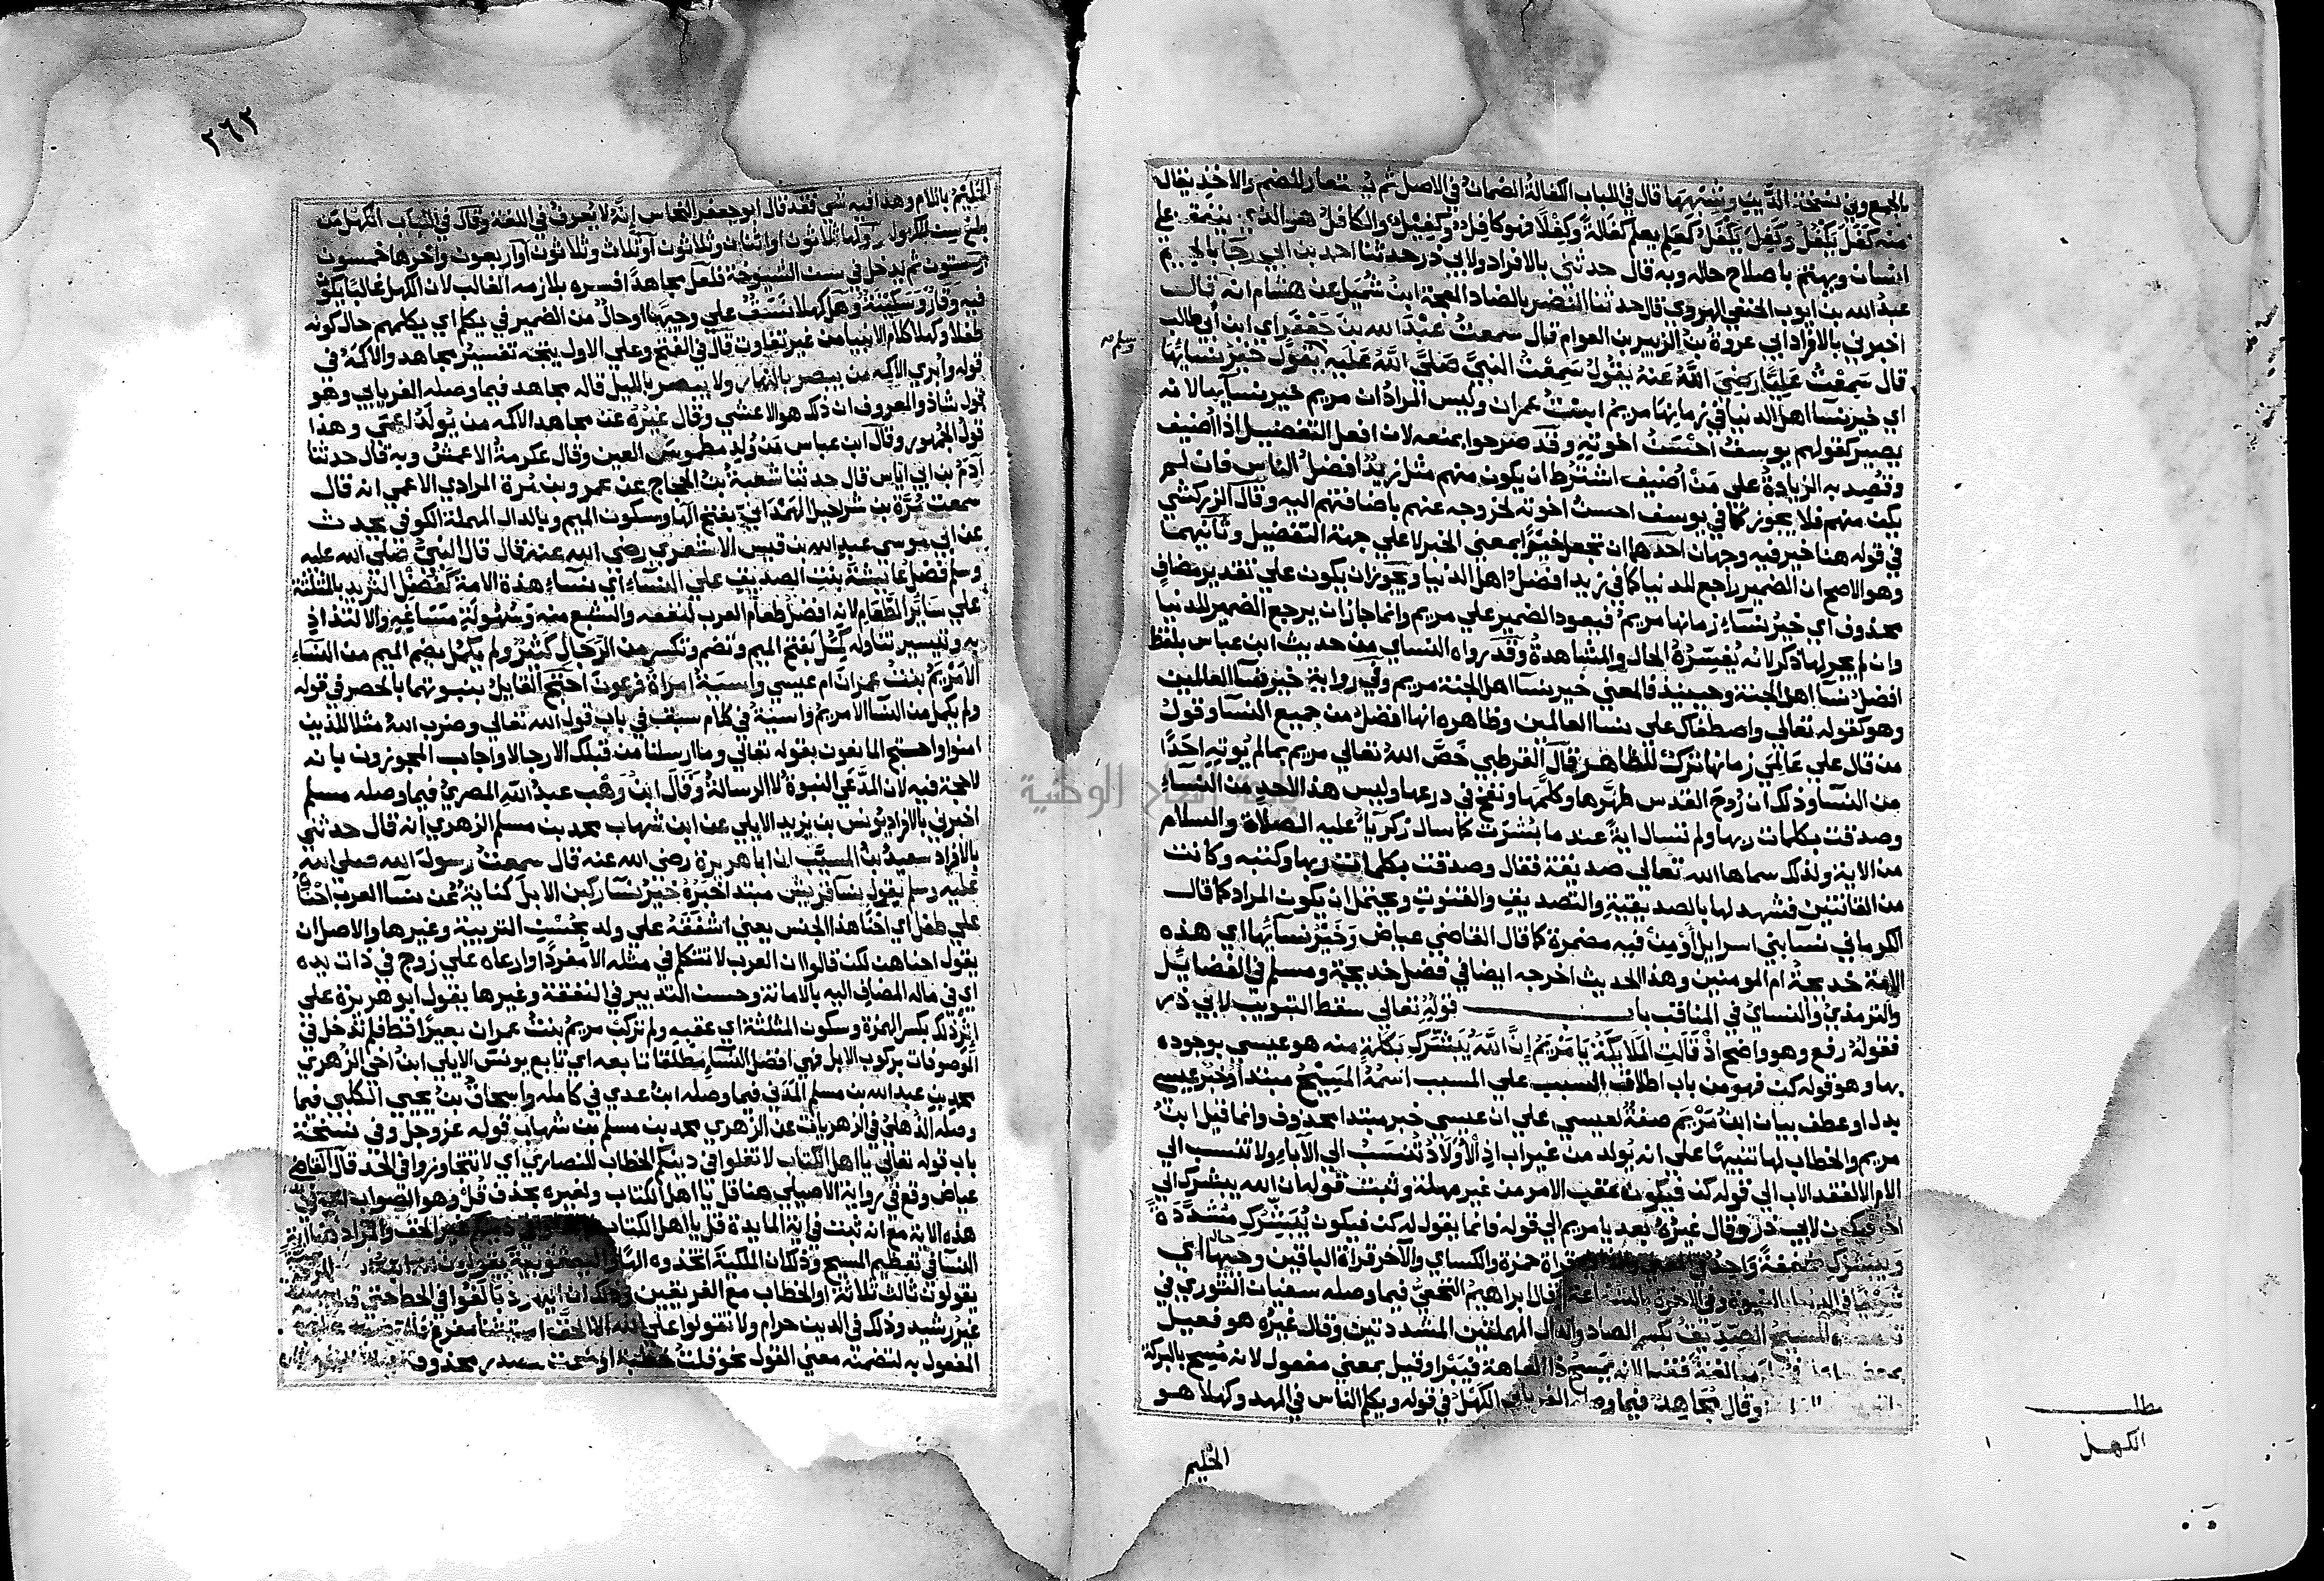 بالجمع وفي نسخة الدين وشبهها قال في اللباب الكفالة الضمان في الاصل ثم يستعار للضم والاخذ يقال
منه كفل يكفل وكفل يكفل كعلم يعلم كفالة وكفلا فهو كافل وكفيل والكافل هو الذي ينفق علي
انسان ويهتم باصلاح حاله وبه قال حدثني بالافراد ولابي ذر حدثنا احمد بن ابي رجا بالجيم
عبد الله بن ايوب الحنفي الهروي قال حدثنا النضر بالضاد المعجمة ابن شميل عن هشام انه قال
اخبرني بالافراد ابي عروة بن الزبير بن العوام قال سمعت عبد الله بن جعفر اي ابن ابي طالب
قال سمعت عليا رضي الله عنه يقول سمعت النبي صلي الله عليه يقول خير نسائها
اي خير نسآ اهل الدنيا في زمانها مريم ابنت عمران وليس المراد ان مريم خير نسايها لانه
يصير كقولهم يوسف احسن اخوته وقد صرحوا بمنعه لان افعل التفضيل اذا اضيف
وقصد به الزيادة علي من اضيف اشترط ان يكون منهم مثل زيد افضل الناس فان لم
يكن منهم فلا يجوز كما في يوسف احسن اخوته لخروجه عنهم باضافتهم اليه وقال الزركشي
في قوله هنا خير فيه وجهان احدها ان تجعل خيرا بمعني الخير لا علي جهة التفضيل وثانيهما
وهو الاصح ان الضمير راجع للدنيا كما في زيد افضل اهل الدنيا ويجوز ان يكون علي تقدير مضاف
محذوف اي خير نساء زمانها مريم فيعود الضمير علي مريم وانما جاز ان يرجع الضمير للدنيا
وان لم يجر لها ذكر لانه يفسره الحال والمشاهدة وقد رواه النساي من حديث ابن عباس بلفظ
افضل نسآ اهل الجنة وحينيذ فالمعني خير نسآ اهل الجنة مريم وفي رواية خير نسآ العالمين
وهو كقوله تعالي واصطفاك علي نسا العالمين وظاهره انها افضل من جميع النسآ وقول
من قال علي عالمي زمانها ترك للظاهر قال القرطبي خص الله تعالي مريم بما لم يوته احدا
من النسآ وذلك ان روح القدس طهرها وكلمها ونفخ في درعها وليس هذا لاحد من النساء
وصدقت بكلمات ربها ولم تسال اية عند ما بشرت كما سال زكريآ عليه الصلاة والسلام
من الاية ولذلك سماها الله تعالي صديقة فقال وصدقت بكلمات ربها وكتبه وكانت
من القانتين فشهد لها بالصديقية والتصديق والقنوت ويحتمل ان يكون المراد كما قال
الكرماني نسآ بني اسرايل او من فيه مضمرة كما قال القاضي عياض وخير نسآئها اي هذه
الامة خديجة ام المومنين وهذا الحديث اخرجه ايضا في فضل خديجة ومسلم في الفضايل
والترمذي والنساي في المناقب باب قوله تعالي سقط التبويب لابي ذر
فقوله رفع وهو واضح اذ قالت الملايكة يا مريم ان الله يبشرك بكلمة منه هو عيسي بوجوده
بها وهو قوله كن فهو من باب اطلاق السبب علي المسبب اسمه المسيح مبتدا وخبر عيسي
بدل او عطف بيان ابن مريم صفة لعيسي علي ان عيسي خبر مبتدا محذوف وانما قيل ابن
مريم والخطاب لها تنبيها علي انه يولد من غير اب اذ الاولاد تنسب الي الآباء ولا تنسب الي
الام الا لفقد الاب الي قوله كن فيكون عقب الامر من غير مهلة وثبت قوله ان الله يبشرك الي
اخر فيكون لابي ذر وقال غيره بعد يا مريم الي قوله فانما يقول له كن فيكون يبشرك مشددة
ويبشرك مخففة واحد في قراة حمزة والكساي والآخر قراة الباقين وجيها اي
شريفا في الدنيا بالنبوة وفي الاخرة بالشفاعة وقال ابراهيم النخعي فيما وصله سفيان الثوري في
تفسيره المسيح الصديق بكسر الصاد والدال المهملتين المشددتين وقال غيره هو فعيل
مبالغة لانه يمسح ذا العاهة فيبرا وقيل بمعني مفعول لانه مسح بالبركة
وقال مجاهد فيما وصله الفريابي الكهل في قوله ويكلم الناس في المهد وكهلا هو
الحليم
مطلب
الكهل
٣٦٣
الحليم باللام وهذا فيه شي فقد قال ابو جعفر النحاس انه لا يعرف في اللغة وقال في اللباب الكهل من
بلغ سن الكهولة واولها ثلاثون او اثنان وثلاثون او ثلاث وثلاثون او اربعون واخرها خمسون
او ستون ثم يدخل في سن الشيوخة فلعل مجاهدا فسره بلازمه الغالب لان الكهل غالبا يكون
فيه وقار وسكينة وهل كهلا نسق علي وجيها او حال من الضمير في يكلم اي يكلمهم حال كونه
طفلا وكهلا كلام الانبيا من غير تفاوت قال في الفتح وعلي الاول يتجه تفسير مجاهد والاكمه في
قوله وابري الاكمه من يبصر بالنهار ولا يبصر بالليل قاله مجاهد فيما وصله الفريابي وهو
قول شاذ والمعروف ان ذلك هو الاعشي وقال غيره عن مجاهد الاكمه من يولد اعمي وهذا
قول الجمهور وقال ابن عباس من ولد مطموس العين وقال عكرمة الاعمش وبه قال حدثنا
آدم بن ابي اياس قال حدثنا شعبة بن الحجاج عن عمرو بن مرة المرادي الاعمي انه قال
سمعت مرة بن شراحيل الهمداني بفتح الها وسكون الميم وبالدال المهملة الكوفي يحدث
عن ابي موسي عبد الله بن قيس الاشعري رضي الله عنه قال قال النبي صلي الله عليه
وسلم فضل عايشة بنت الصديق علي النساء اي نساء هذه الامة كفضل الثريد بالمثلثة
علي سائر الطعام لانه افضل طعام العرب لنفعه والشبع منه وسهولة مساغه والالتذاذ
به وتيسير تناوله كمل بفتح الميم وتضم وتكسر من الرجال كثير ولم يكمل بضم الميم من النساء
الا مريم بنت عمران ام عيسي واسية امراة فرعون احتج القايل بنبوتهما بالحصر في قوله
ولم يكمل من النسآ الا مريم واسية في كلام سبق في باب قول الله تعالي وضرب الله مثلا للذين
امنوا واحتج المانعون بقوله تعالي وما ارسلنا من قبلك الا رجالا واجاب المجوزون بانه
لا حجة فيه لان المدعي النبوة لا الرسالة وقال ابن وهب عبد الله المصري فيما وصله مسلم
اخبرني بالافراد يونس بن يزيد الايلي عن ابن شهاب محمد بن مسلم الزهري انه قال حدثني
بالافراد سعيد بن المسيب ان ابا هريرة رضي الله عنه قال سمعت رسول الله صلي الله
عليه وسلم يقول نسآ قريش مبتدا خبره خير نسآ ركبن الابل كناية عن نسآ العرب احناه
علي طفل اي احنا هذا الجنس يعني اشفقه علي ولد بحسن التربية وغيرها والاصل ان
يقول احناهن لكن قالوا ان العرب لا تتكلم في مثله الا مفردا وارعاه علي زوج في ذات يده
اي في ماله المضاف اليه بالامانة وحسن التدبير في النفقة وغيرها يقول ابو هريرة علي
اثر ذلك بكسر الهمزة وسكون المثلثة اي عقبه ولم تركب مريم بنت عمران بعيرا قط فلم تدخل في
الموصوفات بركوب الابل فهي افضل النساء مطلقا تابعه اي تابع يونس الايلي ابن اخي الزهري
محمد بن عبد الله بن مسلم المدني فيما وصله ابن عدي في كامله واسحاق بن يحيي الكلبي فيما
وصله الذهلي في الزهريات عن الزهري محمد بن مسلم بن شهاب قوله عز وجل وفي نسخة
باب قوله تعالي يا اهل الكتاب لا تغلوا في دينكم الخطاب للنصاري اي لا تتجاوزوا في الحد قال القاضي
عياض وقع في رواية الاصيلي هنا قل يا اهل الكتاب ولغيره بحذف قل وهو الصواب
هذه الاية مع انه ثبت في اية المايدة قل يا اهل الكتاب غير الحق والمراد هنا
في تعظيم المسيح وذلك ان الملكية اتخذوه الها واليعقوبية يقولون
يقولون ثالث ثلاثة او الخطاب مع الفريقين وذلك ان اليهود بالغوا في الحط حتي
غير رشيد وذلك في الدين حرام ولا تقولوا علي الله الا الحق استثنا مفرغ
المفعول به لتضمنه معني القول نحو قلت خطبة او نعت مصدر محذوف